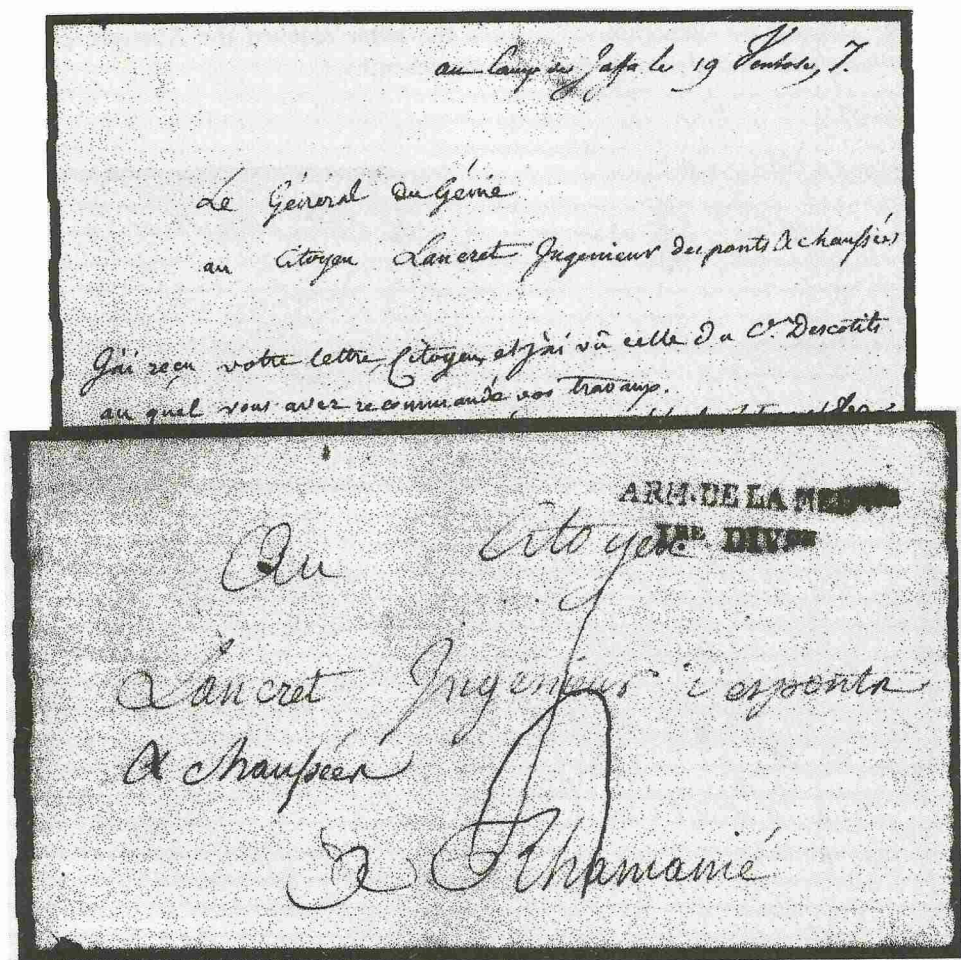 au Camp de Jaffa le 19 Ventose, 7.
Le Général du Génie
au Citoyen Lancret Ingenieur des ponts & chaussées
J'ai reçu votre lettre, Citoyen, et j'ai vû celle du C.en Descotils
au quel vous avez recommandé vos travaux.
ARM. DE LA
Iere DIV
Au Citoyen
Lancret Ingenieur des ponts
& chaussées
a Rhamanié